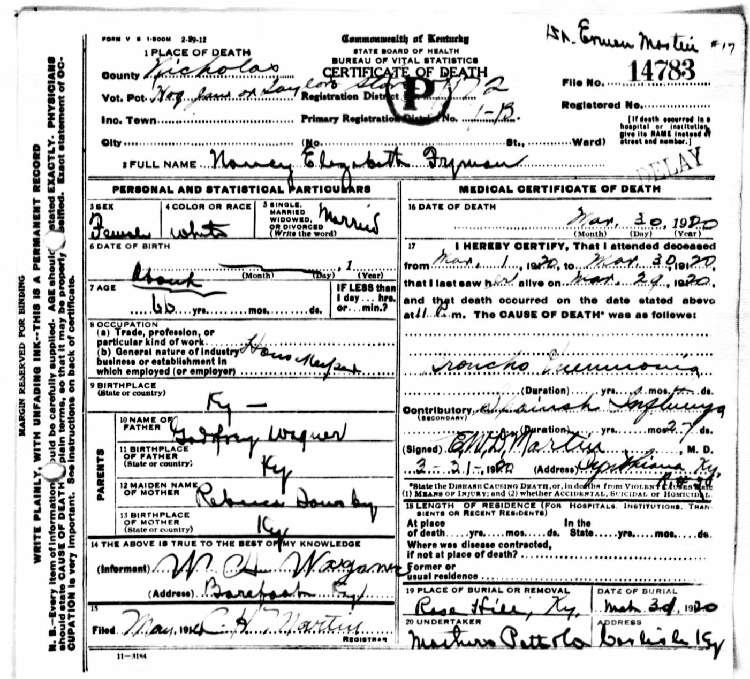 Dr. Erman Martin #17
FORM V S 1-500M 2-29-12
Commonwealth of Kentucky
STATE BOARD OF HEALTH
BUREAU OF VITAL STATISTICS
CERTIFICATE OF DEATH
1 PLACE OF DEATH
County Nicholas
File No. 14783
Vot. Pct. Registration District No. 972
Registered No.
Inc. Town Primary Registration District No. 1-B
[If death occurred in a hospital or institution, give its NAME instead of street and number.]
City (No. St., Ward)
P
DELAY
2 FULL NAME Nancy Elizabeth Fryman
PERSONAL AND STATISTICAL PARTICULARS
3 SEX Female
4 COLOR OR RACE White
5 SINGLE, MARRIED WIDOWED, OR DIVORCED (Write the word) Married
6 DATE OF BIRTH
About
(Month) (Day) , 1 (Year)
7 AGE
60 yrs. mos. ds.
IF LESS than 1 day... hrs. or ... min.?
8 OCCUPATION
(a) Trade, profession, or particular kind of work
(b) General nature of industry business or establishment in which employed (or employer)
House Keeper
9 BIRTHPLACE
(State or country)
Ky —
PARENTS
10 NAME OF FATHER Godfrey Wagner
11 BIRTHPLACE OF FATHER (State or country) Ky
12 MAIDEN NAME OF MOTHER Rebecca
13 BIRTHPLACE OF MOTHER (State or country) Ky
14 THE ABOVE IS TRUE TO THE BEST OF MY KNOWLEDGE
(Informant) W. H. Wagoner
(Address) Barefoot Ky
15
Filed May , 191 C. H. Martin
REGISTRAR
11—3184
MEDICAL CERTIFICATE OF DEATH
16 DATE OF DEATH
Mar. 30, 1920
(Month) (Day) (Year)
17 I HEREBY CERTIFY, That I attended deceased
from Mar. 1, 1920, to Mar 30, 1920
that I last saw her alive on Mar. 29, 1920,
and that death occurred on the date stated above
at 11 P.m. The CAUSE OF DEATH* was as follows:
Broncho Pneumonia
(Duration) yrs. mos. ds.
Contributory Spanish Influenza
(SECONDARY)
(Duration) yrs. mos. ds.
(Signed) E.W.D. Martin, M. D.
3-31-1920 (Address) Cynthiana Ky.
*State the DISEASE CAUSING DEATH, or, in deaths from VIOLENT CAUSES, state (1) MEANS OF INJURY; and (2) whether ACCIDENTAL, SUICIDAL or HOMICIDAL
18 LENGTH OF RESIDENCE (FOR HOSPITALS, INSTITUTIONS, TRANSIENTS OR RECENT RESIDENTS)
At place of death yrs. mos. ds. In the State yrs. mos. ds.
Where was disease contracted, if not at place of death?
Former or usual residence
19 PLACE OF BURIAL OR REMOVAL
Rose Hill, Ky.
DATE OF BURIAL
Mch 31, 1920
20 UNDERTAKER
Mathers
ADDRESS
Carlisle Ky
MARGIN RESERVED FOR BINDING
WRITE PLAINLY, WITH UNFADING INK—THIS IS A PERMANENT RECORD
N. B.—Every item of information should be carefully supplied. AGE should be stated EXACTLY. PHYSICIANS
should state CAUSE OF DEATH in plain terms, so that it may be properly classified. Exact statement of OC-
CUPATION is very important. See instructions on back of certificate.